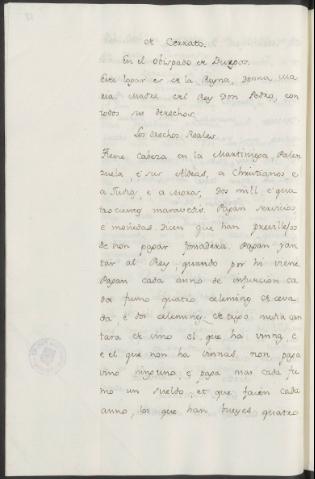 de Cerrato.
En el Obispado de Burgos.
Este logar es de la Reyna, Donna, Ma
ria, Madre del Rey Don Pedro, con
todos sus derechos.
Los drechos Reales.
Tiene Cabeza en la Martiniega, Palen
zuela, e sus Aldeas, a Christianos e
a Judios e a Moros, Dos mill e qua
trocientos maravedis. Pagan servicios,
e monedas. Dicen que han previllejo
de non pagar fonsadera. Pagan yan
tar al Rey, quando por hi viene
Pagan cada anno de infurcion ca
da fumo quatro celemines de ceva
da, e dos celemines de trigo, media can
tara de vino el que ha vinnas, e
e el que non ha vinnas, non paga
vino ninguno, e paga mas cada fu
mo un sueldo, et que facen cada
anno, los que han bueyes quatro